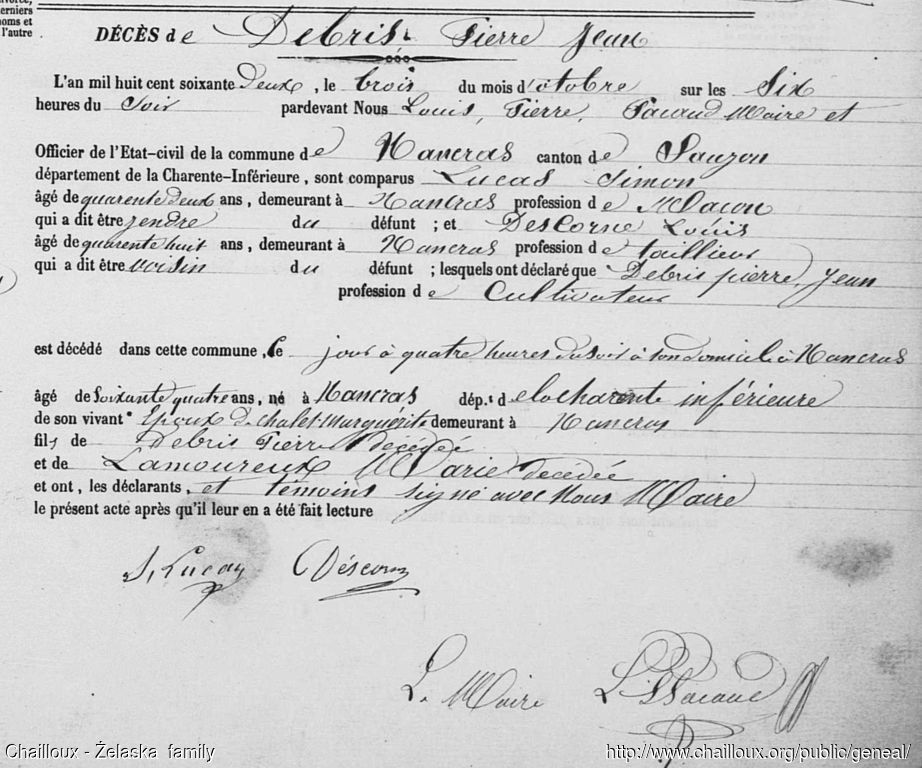 derniers
noms et
l'autre
DÉCÈS de Debris Pierre Jean
L'an mil huit cent soixante Deux, le trois du mois d'octobre sur les Six
heures du Soir pardevant Nous Louis, Pierre, Pacaud Maire et
Officier de l'Etat-civil de la commune de Nancras canton de Saujon
département de la Charente-Inférieure, sont comparus Lucas Simon
âgé de quarente deux ans, demeurant à Nancras profession de Maçon
qui a dit être jendre du défunt ; et Descorne Louis
âgé de quarente huit ans, demeurant à Nancras profession de taillieur
qui a dit être voisin du défunt ; lesquels ont déclaré que Debris pierre, Jean
profession de Cultivateur
est décédé dans cette commune, le jour à quatre heures du soir à son domicile à Nancras
âgé de Soixante quatre ans, né à Nancras dép.t de lacharente inférieure
de son vivant Epoux de chalet Marguérite demeurant à Nancras
fils de Debris Pierre Décédée
et de Lamoureux Marie decédée
et ont, les déclarants, et témoins signé avec Nous Maire
le présent acte après qu'il leur en a été fait lecture
S, Lucas Déscorne
Le Maire L. P. Pacaud
Chailloux - Želaska family http://www.chailloux.org/public/geneal/